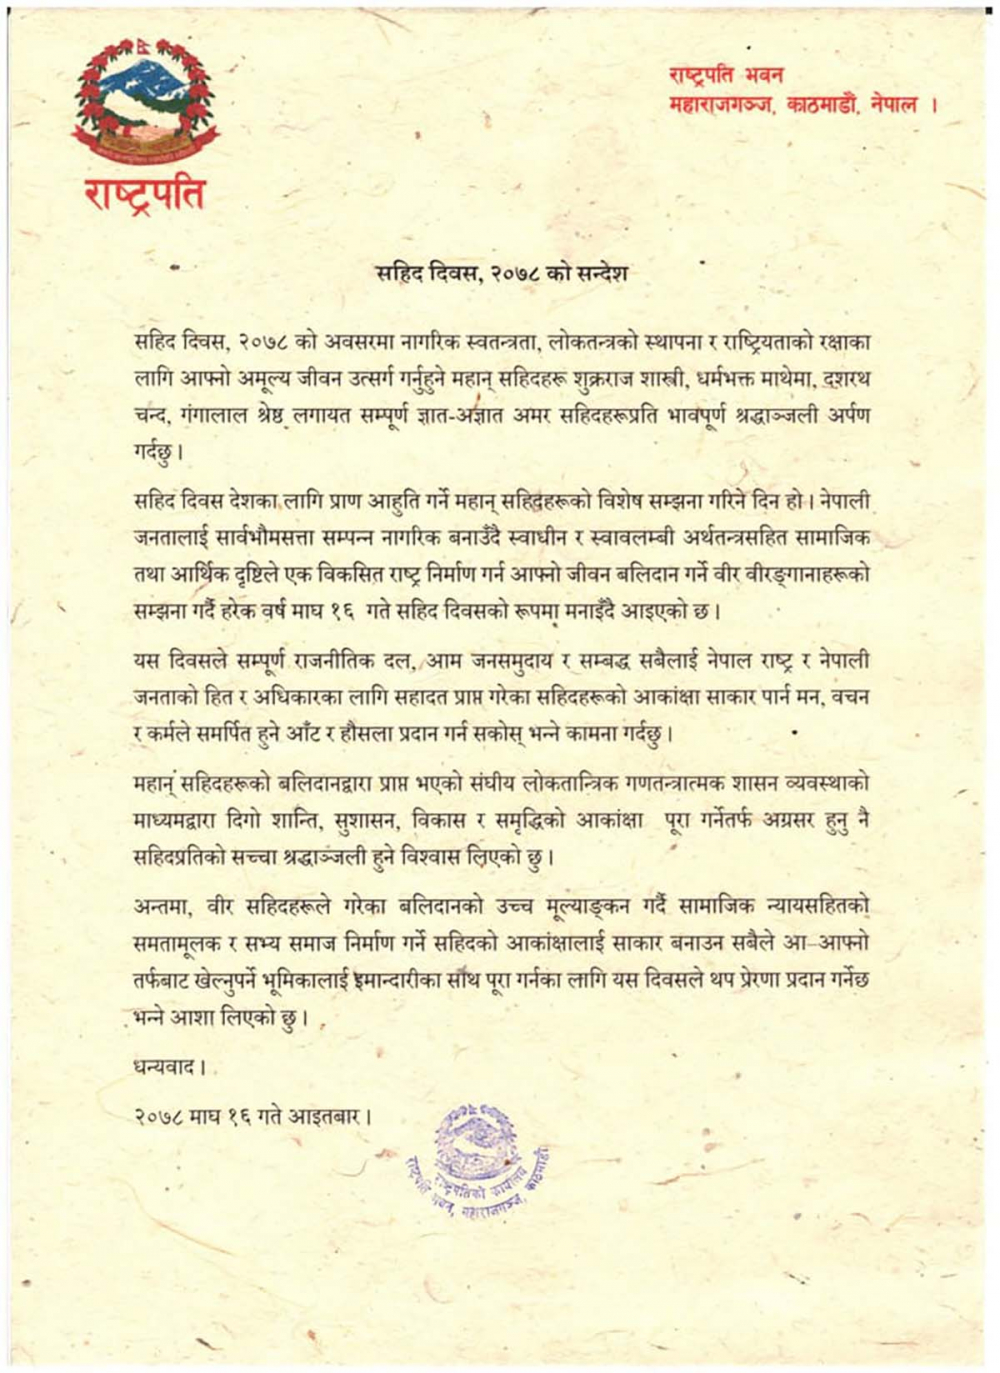 राष्ट्रपति
राष्ट्रपति भवन
महाराजगञ्ज, काठमाडौं, नेपाल ।
सहिद दिवस, २०७८ को सन्देश
सहिद दिवस, २०७८ को अवसरमा नागरिक स्वतन्त्रता, लोकतन्त्रको स्थापना र राष्ट्रियताको रक्षाका
लागि आफ्नो अमूल्य जीवन उत्सर्ग गर्नुहुने महान् सहिदहरू शुक्रराज शास्त्री, धर्मभक्त माथेमा, दशरथ
चन्द, गंगालाल श्रेष्ठ लगायत सम्पूर्ण ज्ञात-अज्ञात अमर सहिदहरूप्रति भावपूर्ण श्रद्धाञ्जली अर्पण
गर्दछु ।
सहिद दिवस देशका लागि प्राण आहुति गर्ने महान् सहिदहरूको विशेष सम्झना गरिने दिन हो । नेपाली
जनतालाई सार्वभौमसत्ता सम्पन्न नागरिक बनाउँदै स्वाधीन र स्वावलम्बी अर्थतन्त्रसहित सामाजिक
तथा आर्थिक दृष्टिले एक विकसित राष्ट्र निर्माण गर्न आफ्नो जीवन बलिदान गर्ने वीर वीरङ्गानाहरूको
सम्झना गर्दै हरेक वर्ष माघ १६ गते सहिद दिवसको रूपमा मनाइँदै आइएको छ ।
यस दिवसले सम्पूर्ण राजनीतिक दल, आम जनसमुदाय र सम्बद्ध सबैलाई नेपाल राष्ट्र र नेपाली
जनताको हित र अधिकारका लागि सहादत प्राप्त गरेका सहिदहरूको आकांक्षा साकार पार्न मन, वचन
र कर्मले समर्पित हुने आँट र हौसला प्रदान गर्न सकोस् भन्ने कामना गर्दछु ।
महान् सहिदहरूको बलिदानद्वारा प्राप्त भएको संघीय लोकतान्त्रिक गणतन्त्रात्मक शासन व्यवस्थाको
माध्यमद्वारा दिगो शान्ति, सुशासन, विकास र समृद्धिको आकांक्षा पूरा गर्नेतर्फ अग्रसर हुनु नै
सहिदप्रतिको सच्चा श्रद्धाञ्जली हुने विश्वास लिएको छु ।
अन्तमा, वीर सहिदहरूले गरेका बलिदानको उच्च मूल्याङ्कन गर्दै सामाजिक न्यायसहितको
समतामूलक र सभ्य समाज निर्माण गर्ने सहिदको आकांक्षालाई साकार बनाउन सबैले आ-आफ्नो
तर्फबाट खेल्नुपर्ने भूमिकालाई इमान्दारीका साथ पूरा गर्नका लागि यस दिवसले थप प्रेरणा प्रदान गर्नेछ
भन्ने आशा लिएको छु ।
धन्यवाद ।
२०७८ माघ १६ गते आइतबार ।
राष्ट्रपतिको कार्यालय
राष्ट्रपति भवन, महाराजगञ्ज, काठमाडौं